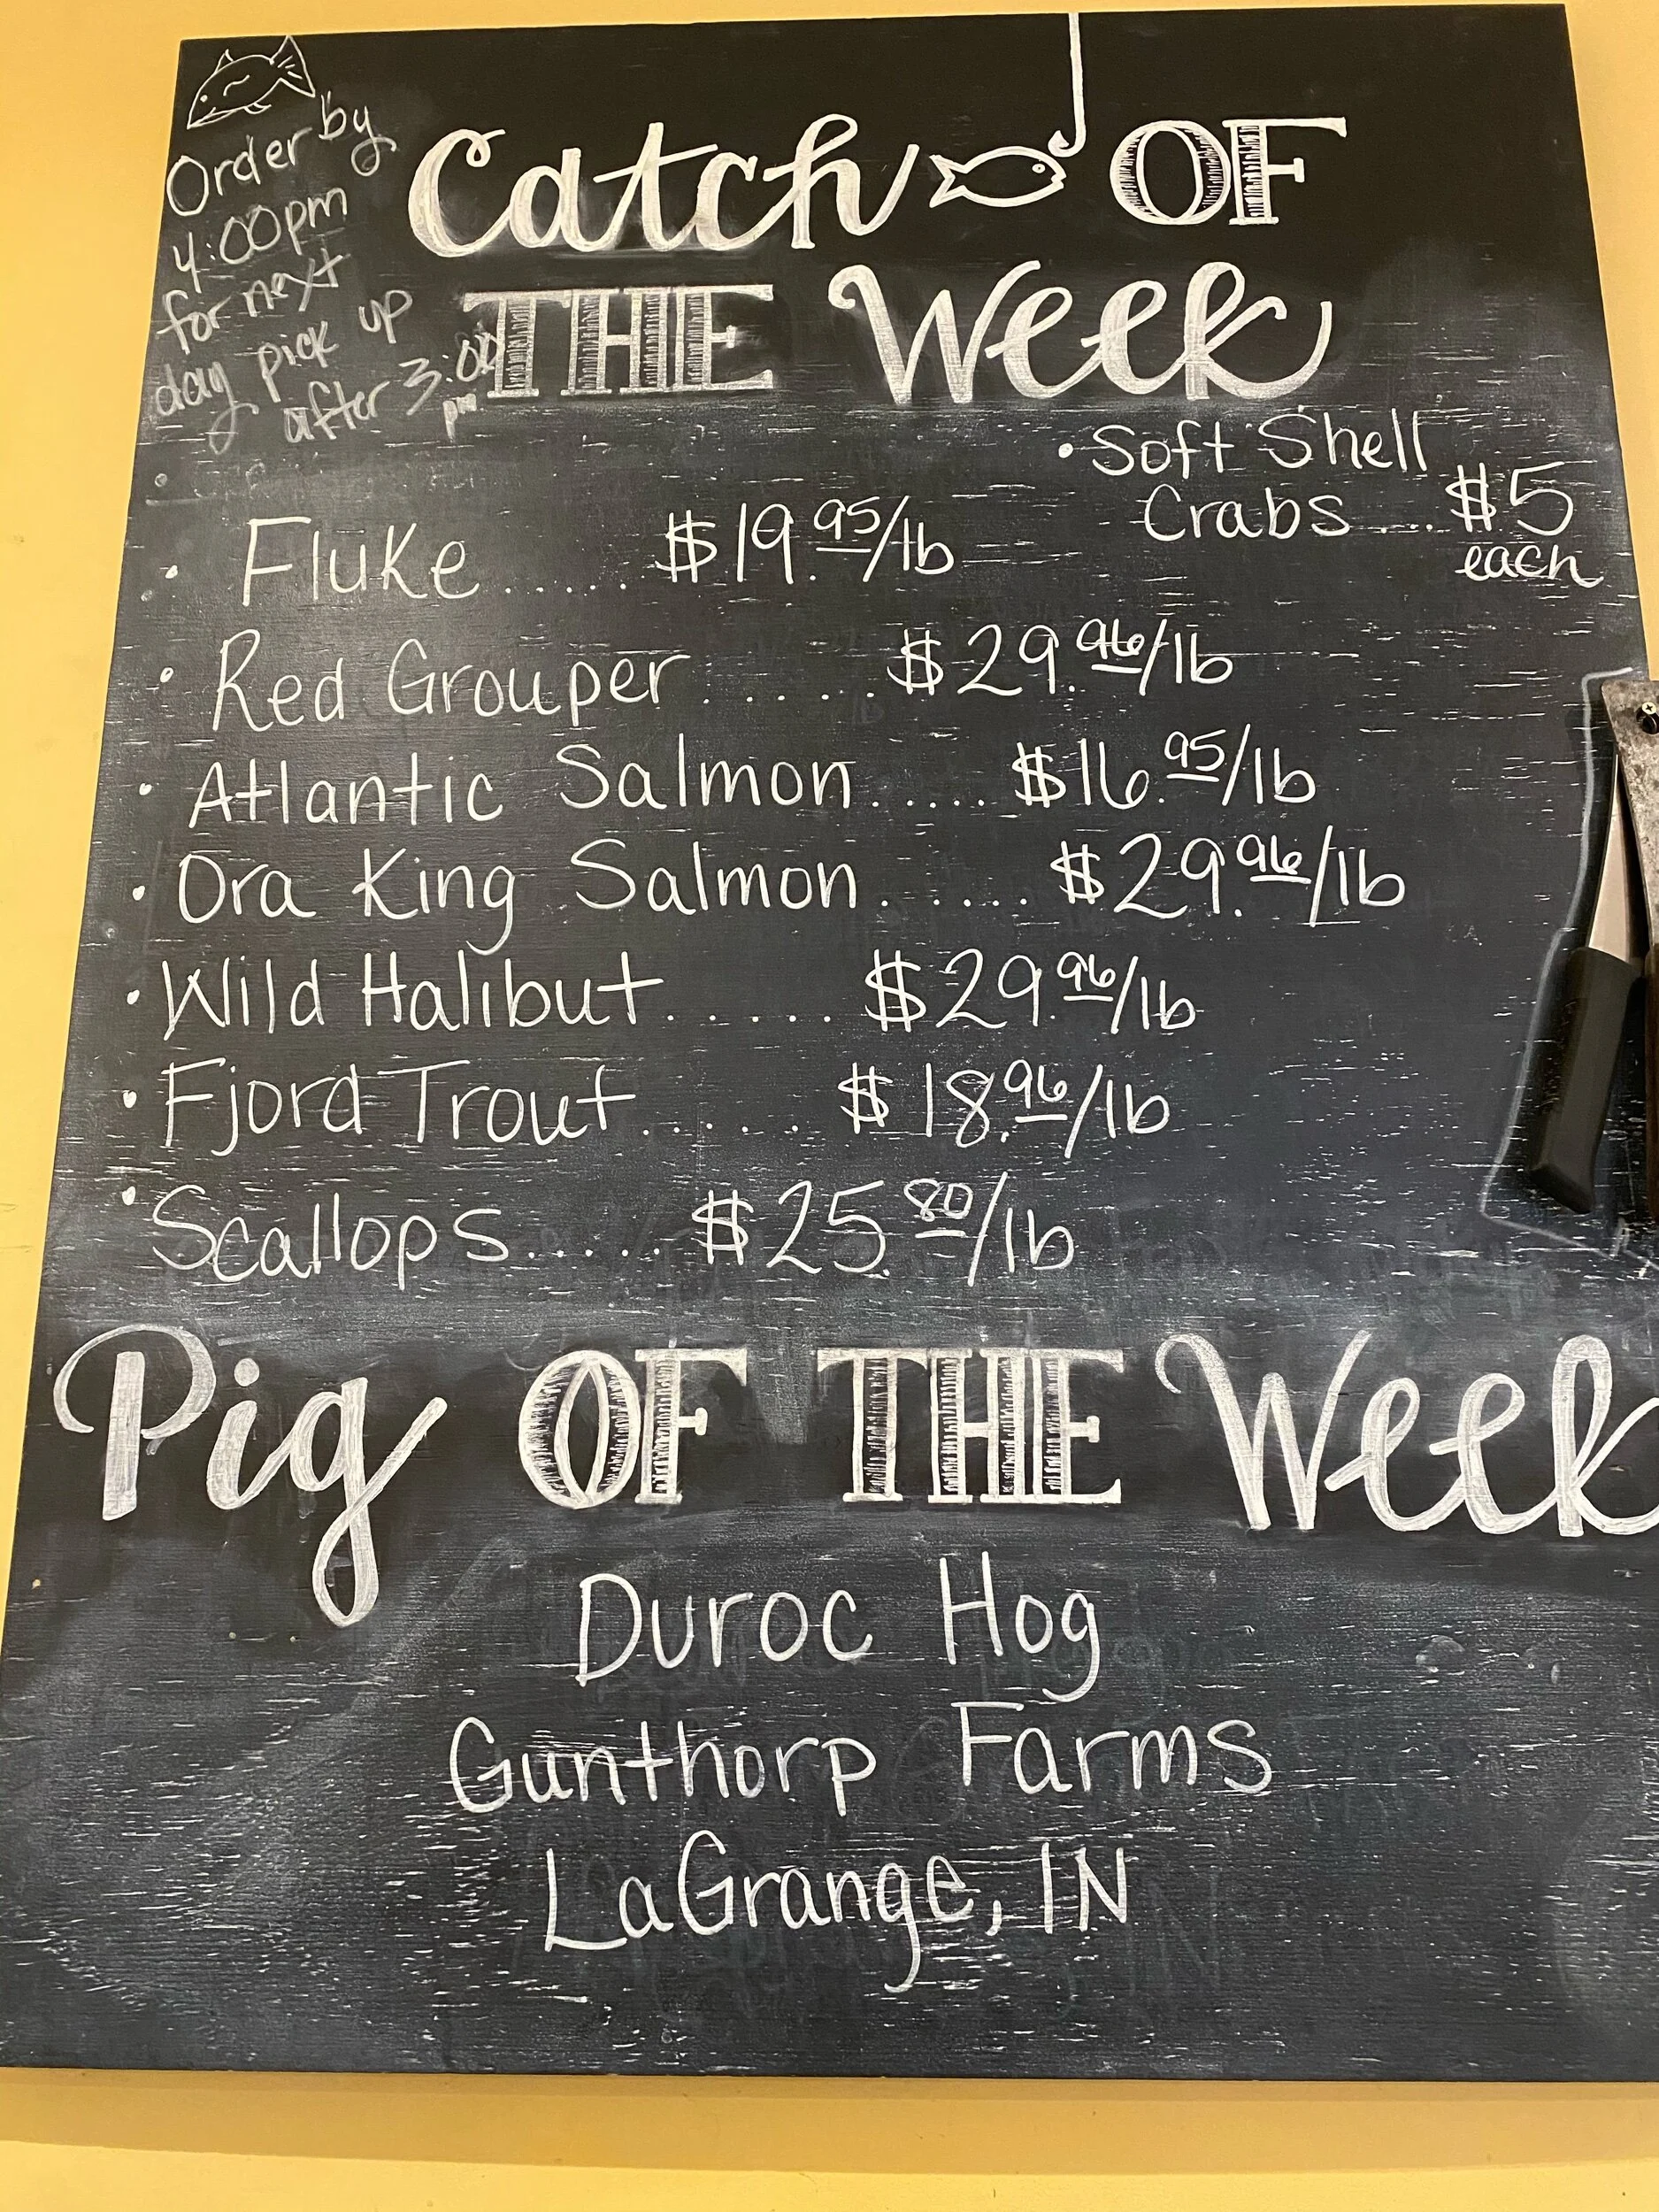 Order by
4:00pm
for next
day pick up
after 3:00
pm
Catch OF
THE Week
• Soft Shell
Crabs.... $5
each
• Fluke...... $19.95/lb
• Red Grouper...... $29.96/lb
• Atlantic Salmon..... $16.95/lb
• Ora King Salmon..... $29.96/lb
• Wild Halibut...... $29.96/lb
• Fjord Trout..... $18.96/lb
• Scallops..... $25.80/lb
Pig OF THE Week
Duroc Hog
Gunthorp Farms
LaGrange, IN